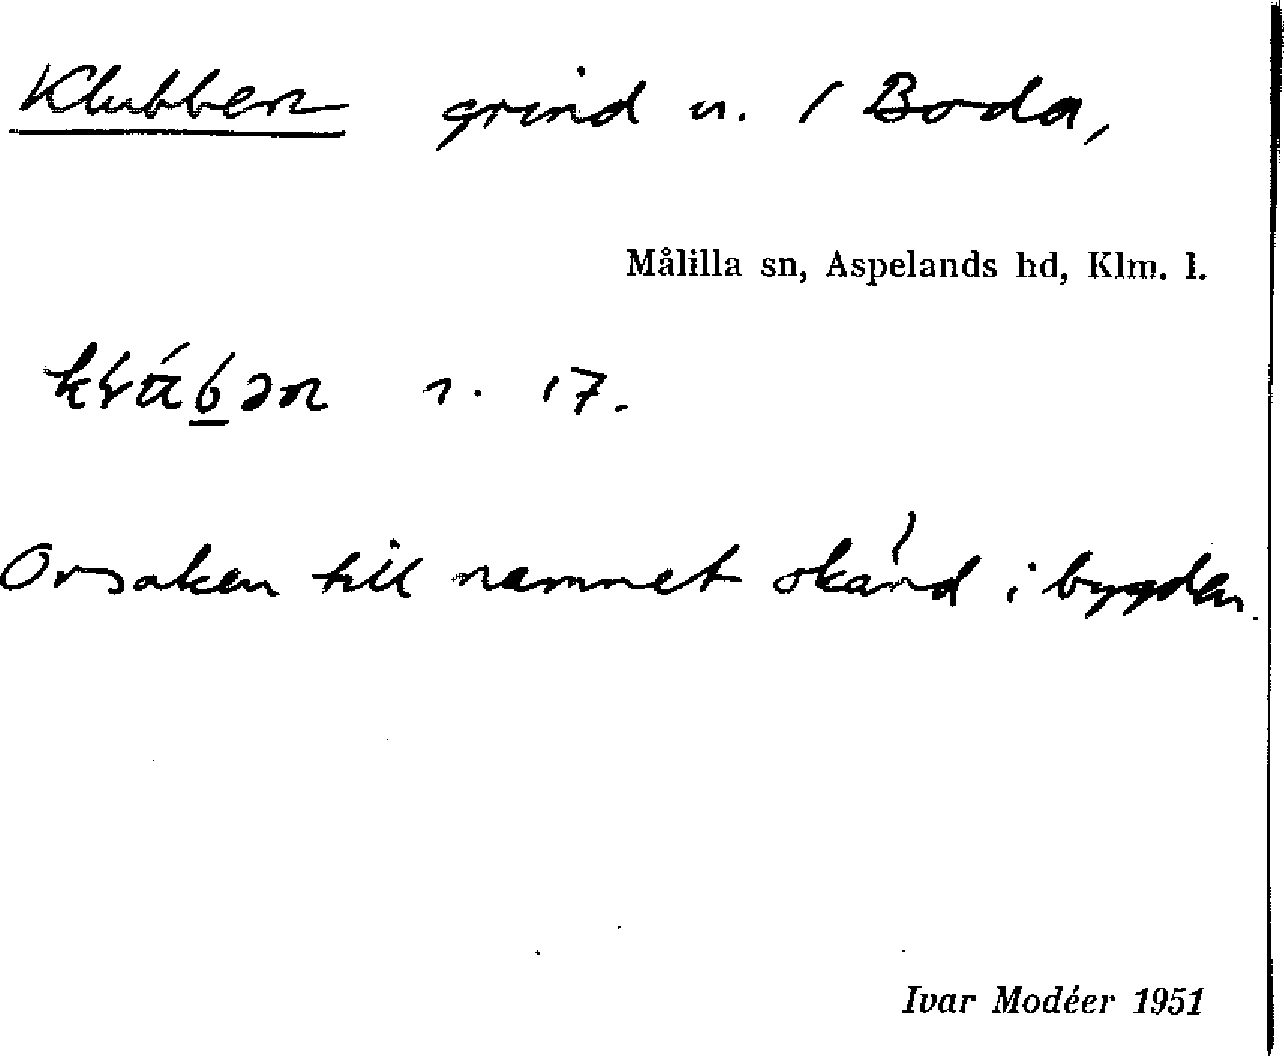 Klubben grind n. / Boda,
Målilla sn, Aspelands hd, Klm. l.
1. 17.
Orsaken till namnet okänd i bygden.
Ivar Modéer 1951